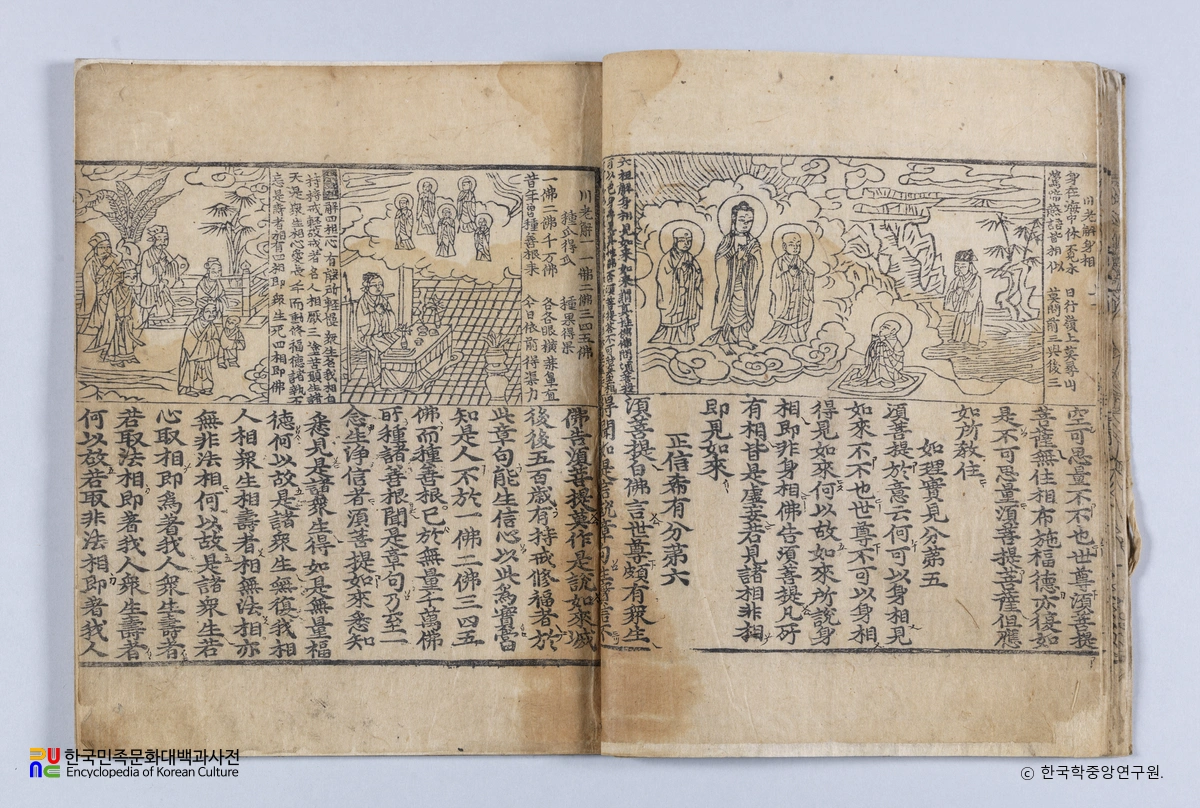 川老解身相
身在海中休覓水
日行嶺上莫尋山
鶯啼燕語皆相似
莫問前三與後三
空可思量不不也世尊湏菩提
菩薩無住相布施福德亦復如
是不可思量湏菩提菩薩但應
如所教住
如理實見分第五
湏菩提於意云何可以身相見
如來不不也世尊不可以身相
得見如來何以故如來所說身
相即非身相佛告湏菩提凡所
有相皆是虛妄若見諸相非相
即見如來
正信希有分第六
湏菩提白佛言世尊頗有衆生
得聞如是言說章句生實信不
川老解一佛二佛三四五佛
種瓜得瓜
種果得果
一佛二佛千万佛
各各眼橫兼鼻直
昔年曾種善根來
今日依前得渠力
佛告湏菩提莫作是說如來滅
後後五百歲有持戒修福者於
此章句能生信心以此為實當
知是人不於一佛二佛三四五
佛而種善根已於無量千萬佛
所種諸善根聞是章句乃至一
念生淨信者湏菩提如來悉知
悉見是諸衆生得如是無量福
德何以故是諸衆生無復我相
人相衆生相壽者相無法相亦
無非法相何以故是諸衆生若
心取相即爲著我人衆生壽者
若取法相即著我人衆生壽者
何以故若取非法相即著我人
한국민족문화대백과사전
Encyclopedia of Korean Culture
© 한국학중앙연구원.